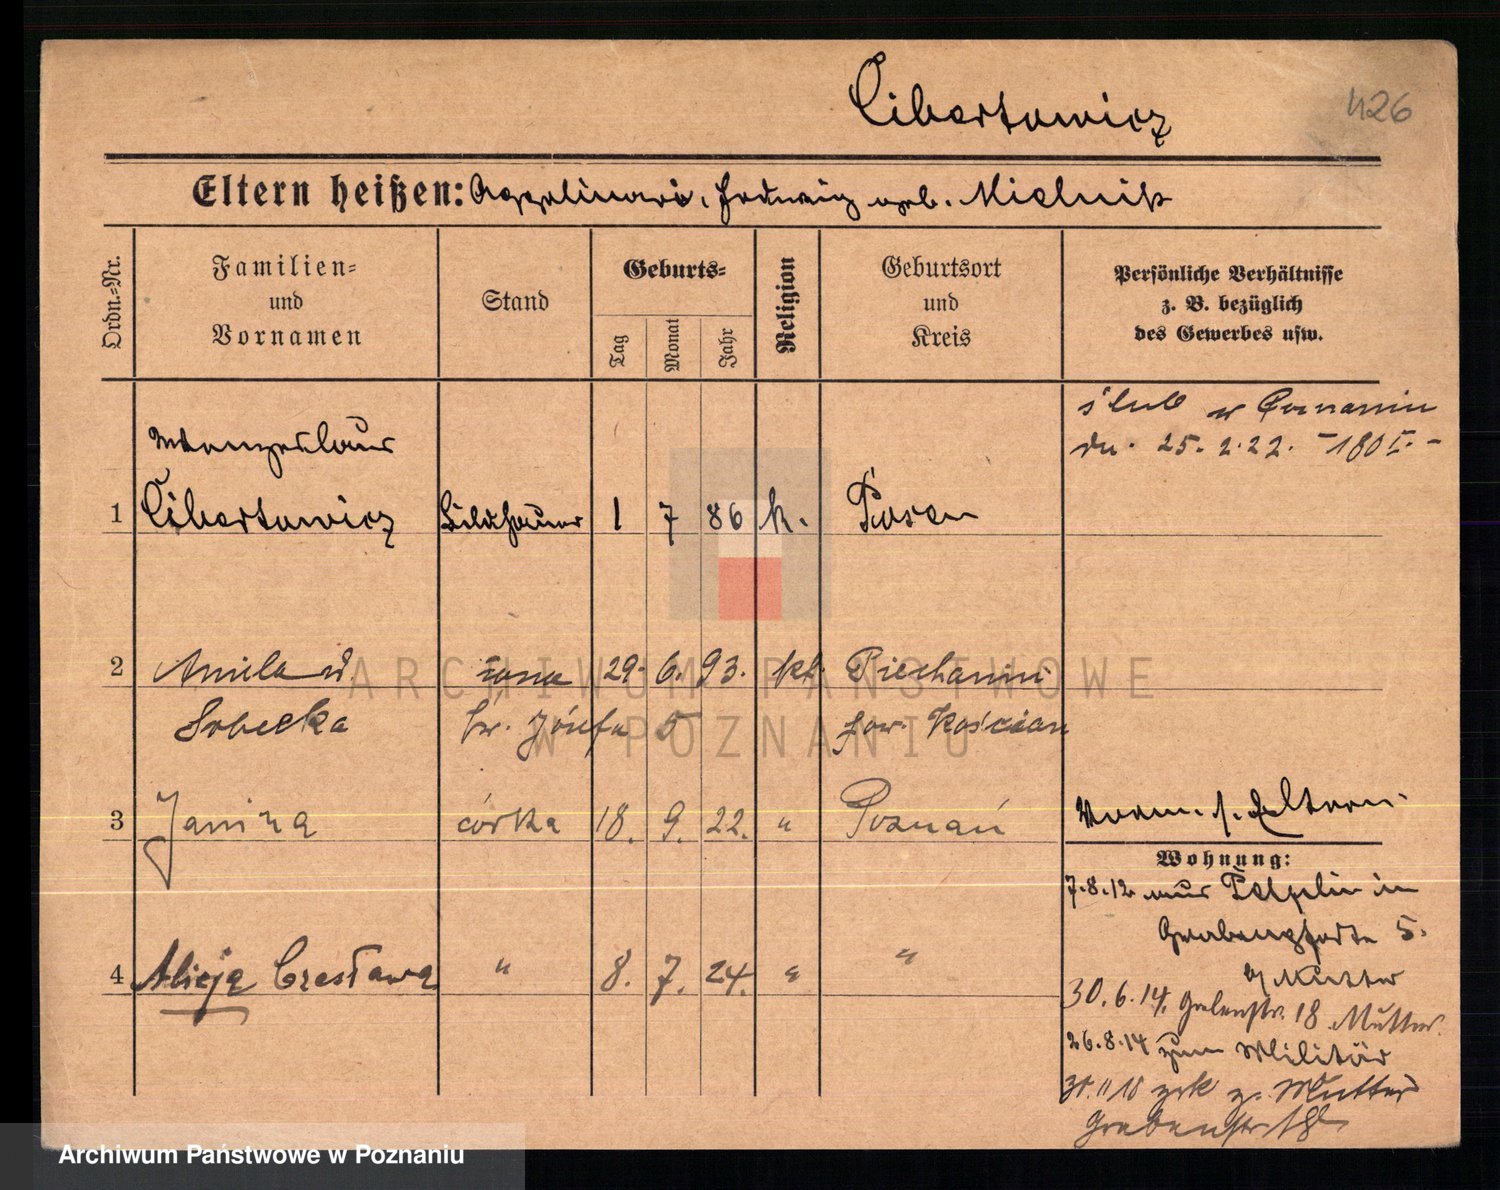 Cibertowicz 426
Eltern heißen: Appolinari, Hedwig geb. Mielnik
Ordn.-Nr.
Familien-
und
Vornamen
Stand
Geburts-
Tag
Monat
Jahr
Religion
Geburtsort
und
Kreis
Persönliche Verhältnisse
z. B. bezüglich
des Gewerbes usw.
ślub w Poznaniu
dn. 25. 2. 22. -180 I.-
Wenzeslaus
1 Cibertowicz Bildhauer 1 7 86 k. Posen
2 Aniela żona 29. 6. 93. kt. Piechanin
Sobecka Józefa 5 pow. Kościan
3 Janina córka 18. 9. 22. " Poznań
Vorm. s. Eltern.
Wohnung:
7.8.12 aus Pelplin in
Grabenpforte 5.
b/ Mutter
4 Alicja Czesława " 8. 7. 24. " "
30.6.14. Grabenstr. 18 Mutter.
26.8.14 zum Militär
30.11 18 zrk z. Mutter
Grabenstr 18
ARCHIWUM PAŃSTWOWE
W POZNANIU
Archiwum Państwowe w Poznaniu